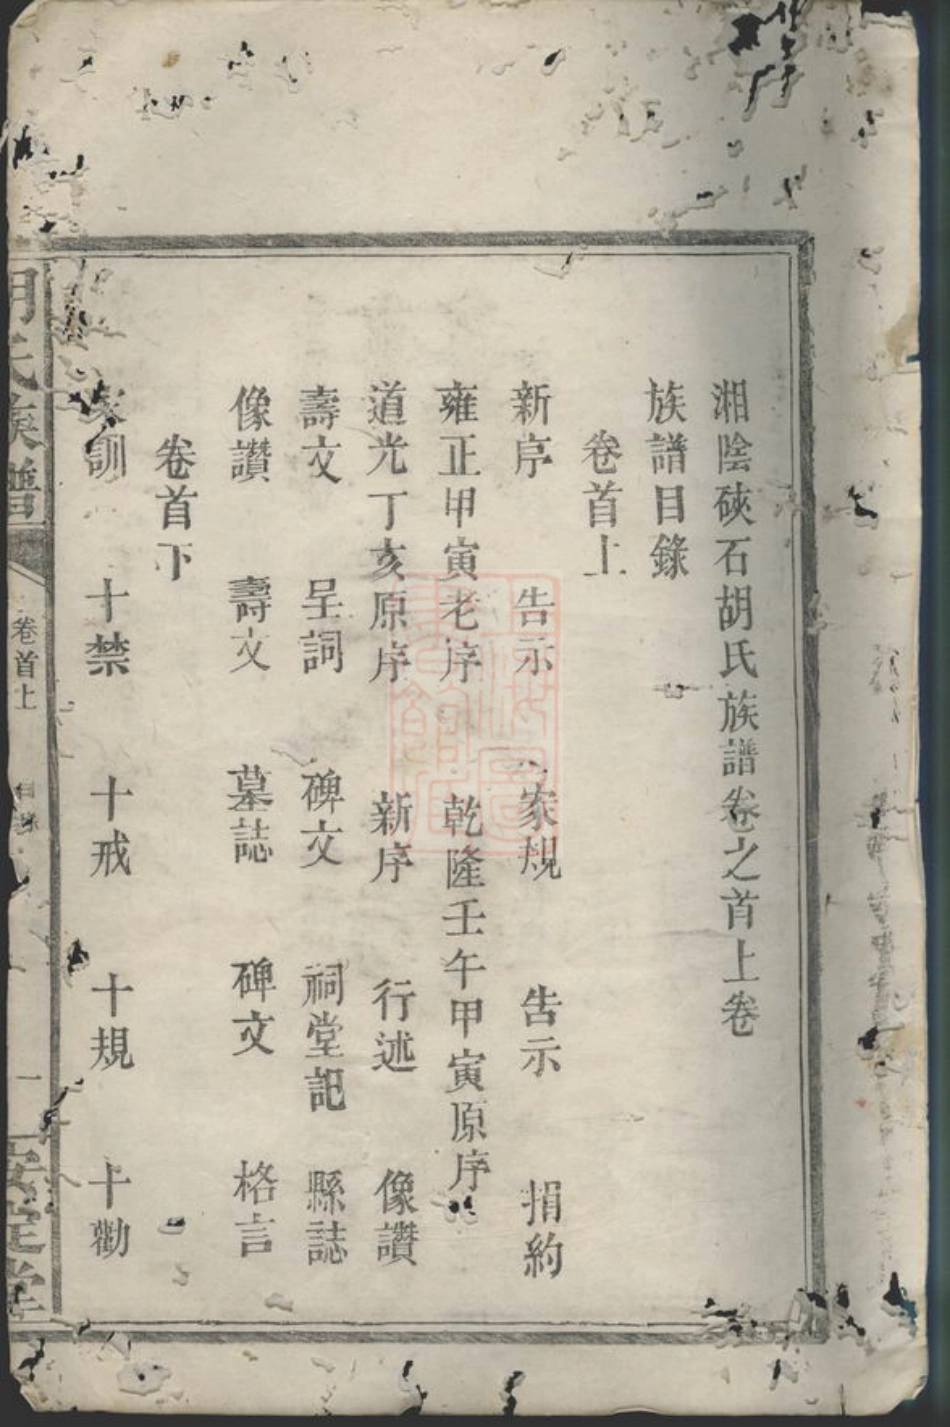 湘陰硤石胡氏族譜卷之首上卷
族譜目錄
卷首上
新序 告示 家規 告示 捐約
雍正甲寅老序 乾隆壬午甲寅原序
道光丁亥原序 新序 行述 像讚
壽文 呈詞 碑文 祠堂記 縣誌
像讚 壽文 墓誌 碑文 格言
卷首下
家訓 十禁 十戒 十規 十勸
胡氏族譜 卷首上 目錄 一 安定堂